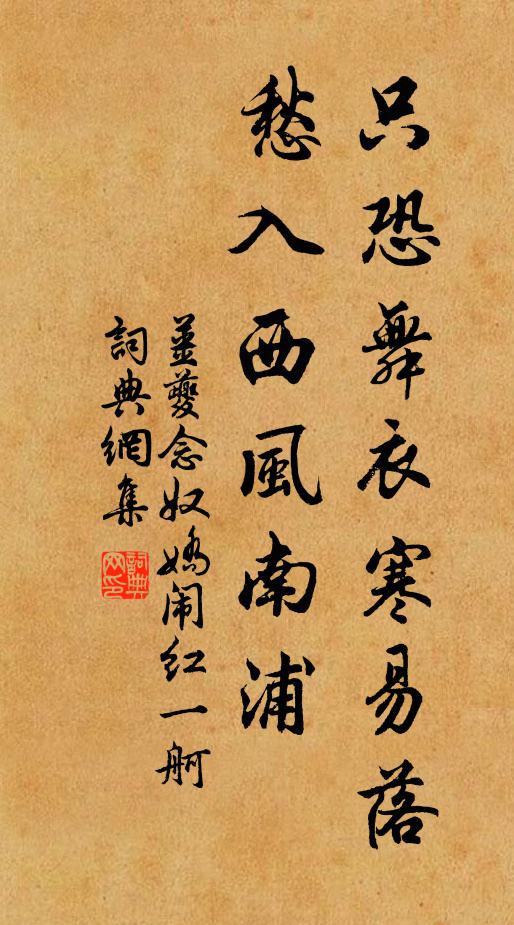 只恐舞衣寒易落
愁入西風南浦
姜夔念奴嬌闹红一舸
詞典網集
詞典網印